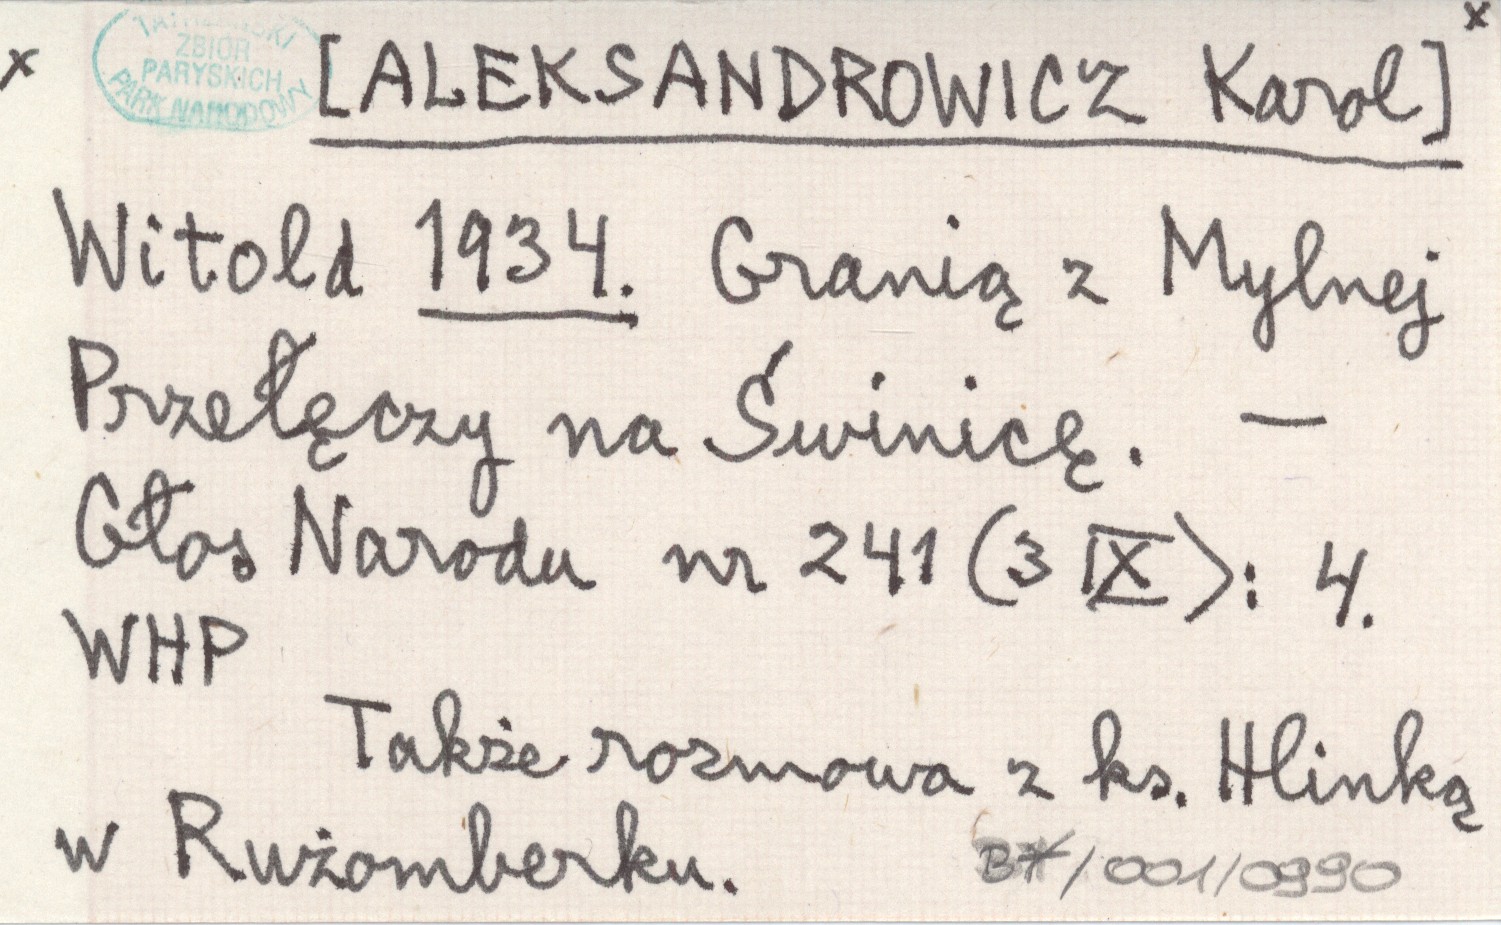 x
x
TATRZAŃSKI
ZBIÓR
PARYSKICH
PARK NARODOWY
[ALEKSANDROWICZ Karol]
Witold 1934. Granią z Mylnej
Przełęczy na Świnicę. —
Głos Narodu nr 241 (3 IX): 4.
WHP
Także rozmowa z ks. Hlinką
w Rużomberku.
B7/001/0990